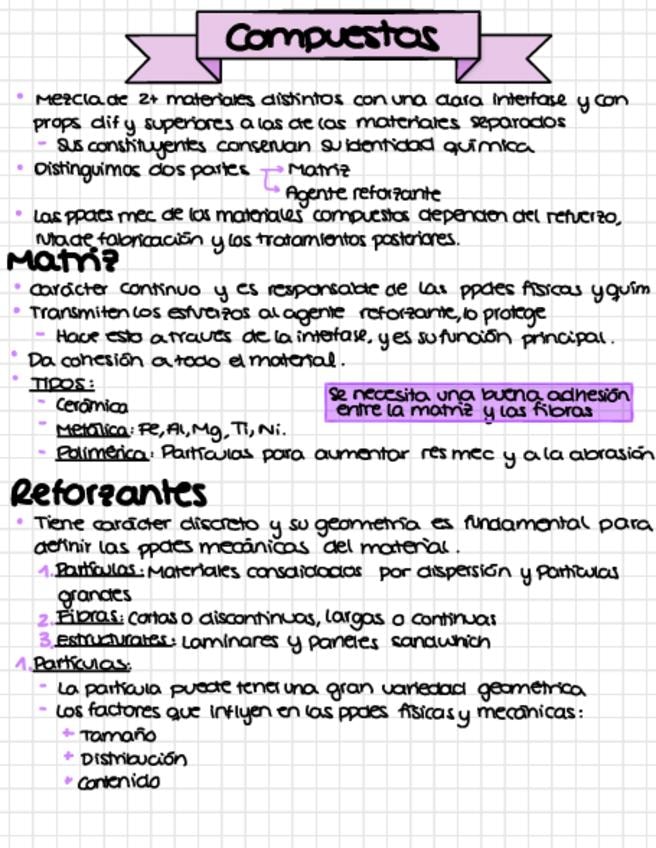 Compuestos
• Mezcla de 2+ materiales distintos con una clara interfase y con
props dif y superiores a las de los materiales separados
- Sus constituyentes conservan su identidad química
• Distinguimos dos partes → Matriz
→ Agente reforzante
• Las ppdes mec de los materiales compuestos dependen del refuerzo,
ruta de fabricación y los tratamientos posteriores.
Matriz
• carácter continuo y es responsable de las ppdes físicas y quím
• Transmiten los esfuerzos al agente reforzante, lo protege
- Hace esto a traves de la interfase, y es su función principal.
• Da cohesión a todo el material.
• TIPOS:
- Cerámica
- Metálica: Fe, Al, Mg, Ti, Ni.
- Polimérica: Partículas para aumentar res mec y a la abrasión
Se necesita una buena adhesión
entre la matriz y las fibras
Reforzantes
• Tiene carácter discreto y su geometría es fundamental para
definir las ppdes mecánicas del material.
1. Partículas: Materiales consolidados por dispersión y Partículas
grandes
2. Fibras: Cortas o discontinuas, largas o continuas
3. estructurales: Laminares y paneles sandwhich
1. Partículas:
- La partícula puede tener una gran variedad geométrica
- Los factores que influyen en las ppdes físicas y mecánicas:
+ Tamaño
+ Distribución
+ Contenido